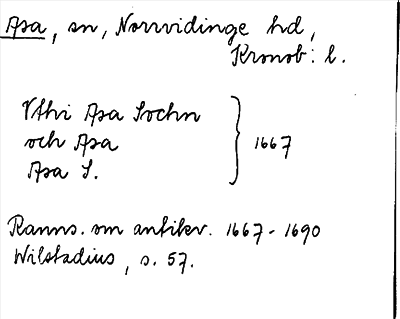 Asa, sn, Norrvidinge hd,
Kronob: l.
Vthi Asa Sochn
och Asa
Asa S.
1667
Ranns. om antikv. 1667-1690
Wilstadius, s. 57.